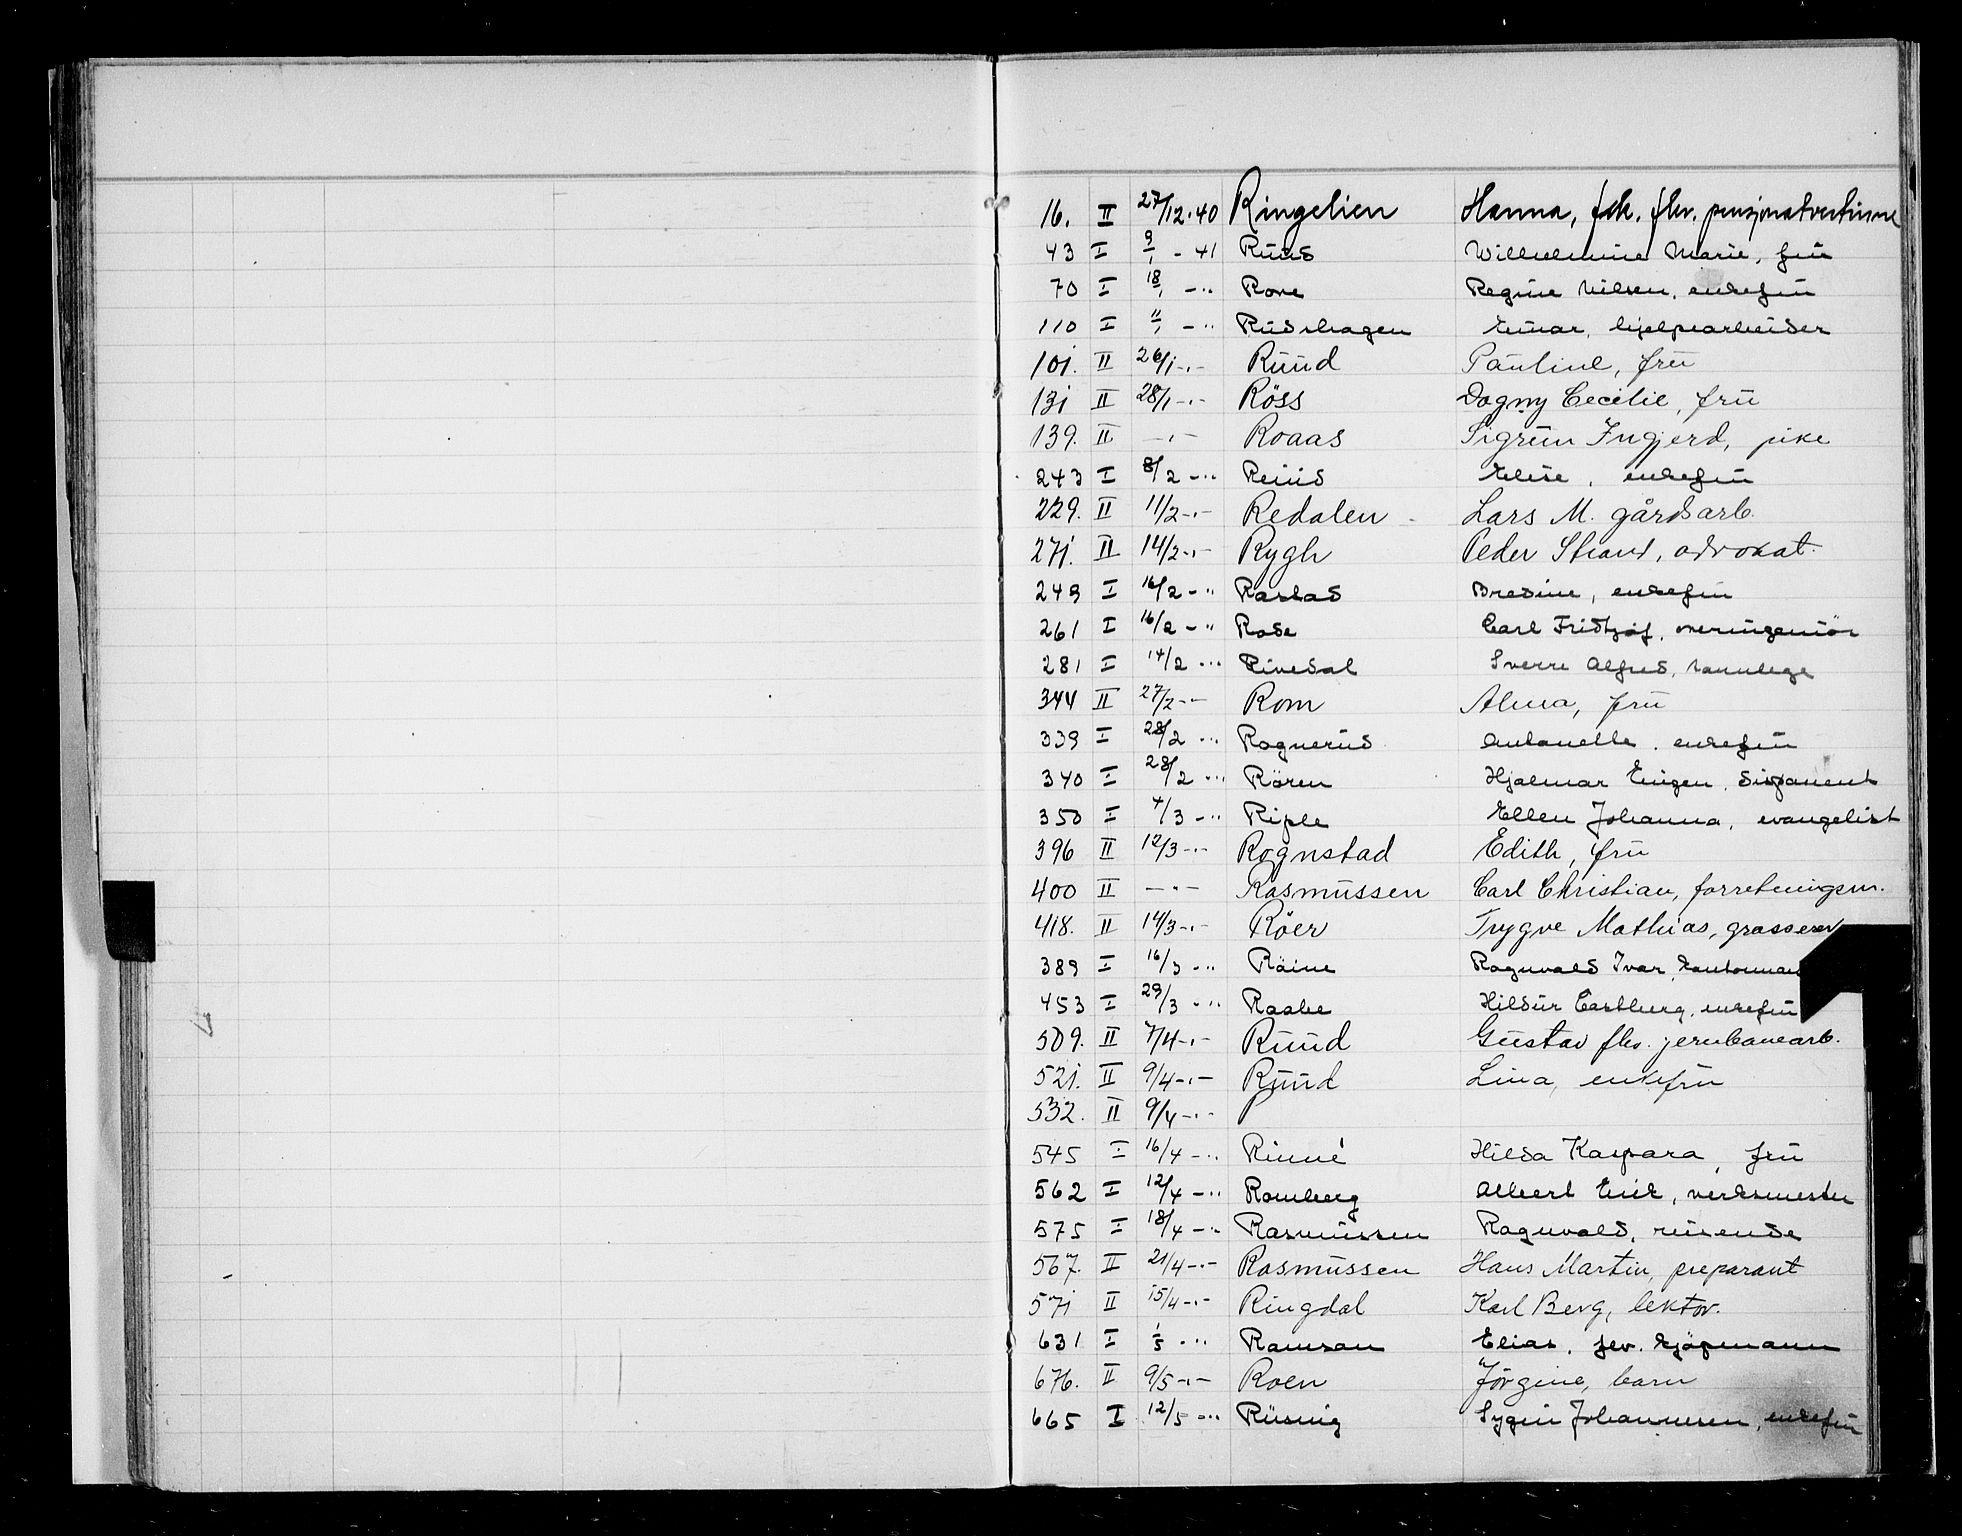 16. II 27/12-40 Ringelien Hanna, frk. fhv. pensjonatvertinne
43 I 9/1 - 41 Ruud Wilhelmine Marie, fru
70 I 18/1 - " Rove Regine Nilsen, enkefru
110 I 11/1 - " Rudshagen Einar, hjelpearbeider
101. II 26/1 - " - Ruud Pauline, fru
131 II 28/1 - " - Röss Dagny Cecilie, fru
139. II - " - Roaas Sigrun Ingjerd, pike
243 I 8/2 - " Ruud Elise, enkefru
229. II 11/2 - " - Redalen Lars M. gårdsarb.
271. II 14/2 - " - Rygh Peder Strand, advokat.
249 I 16/2 - " Rastad Bredine, enkefru
261 I 16/2 - " Rode Carl Fridtjof, overingeniör
281 I 14/2 - " Rivedal Sverre Alfred, tannlege
344 II 27/2 - " - Rom Alma, fru
339 I 28/2 - " Rognerud Antonette, enkefru
340 I 28/2 - " Rören Hjalmar Eugen, disponent
350 I 4/3 - " Riple Ellen Johanna, evangelist
396 II 12/3 - " - Rognstad Edith, fru
400 II - " - Rasmussen Carl Christian, forretningsm.
418. II 14/3 - " - Röer Trygve Mathias, grosserer
389 I 16/3 - " Räine Ragnvald Ivar,
453 I 29/3 - " Raabe Hildur Castberg, enkefru
509. II 7/4 - " - Ruud Gustav fhv. jernbanearb.
521. II 9/4 - " - Ruud Lina, enkefru
532. II 9/4 - " - R
545 I 16/4 - " Rinné Hilda Kaspara, fru
562 I 12/4 - " Romberg Albert Erik, verksmester
575 I 18/4 - " Rasmussen Ragnvald, reisende
567. II 21/4 - " - Rasmussen Hans Martin, preparant
571 II 15/4 - " - Ringdal Karl Berg, lektor.
631 I 1/5 - " Ramson Elias, fhv. kjöpmann
676. II 9/5 - " - Roen Jörgine, barn
665 I 12/5 - " Rüsnig Johannesen, enkefru